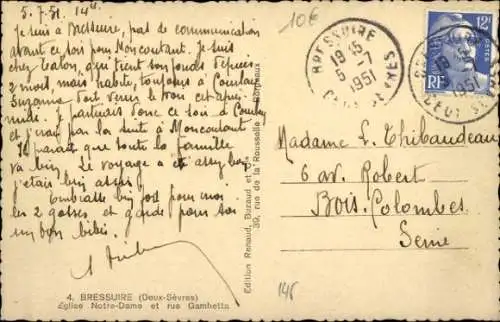 5.7.51. 14h.
Je suis à Bressuire, pas de communication
avant ce soir pour Moncoutant. Je suis
chez Talon, qui tient son fonds depuis
2 mois, mais habite, toujours à
Suzanne doit venir le voir cet après-
midi. Je partirais donc ce soir à
et j'irai par la suite à Moncoutant
Il paraît que toute la famille
va bien. Le voyage a été assez bon,
j'étais bien assis.
Embrasse bien fort pour moi
les 2 gosses, et garde pour toi
un bon bébé.
4. BRESSUIRE (Deux-Sèvres)
Église Notre-Dame et rue Gambetta
Edition Renaud, Buzaud et
39, rue de la Rousselle - Bordeaux
10€
BRESSUIRE
19 45
5 -7
1951
DEUX SEVRES
12F
POSTES
RF
Madame L. Thibaudeau
6 av. Robert
Bois-Colombes
Seine